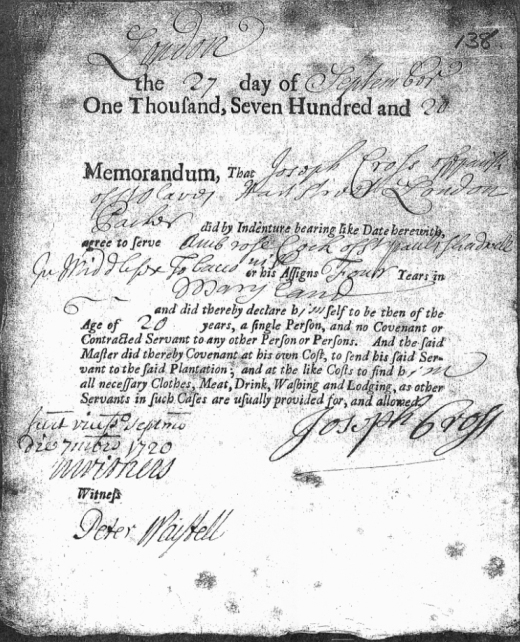 138
London
the 27 day of September
One Thouſand, Seven Hundred and 20
Memorandum, That Joseph Cross of parish
of St Olaves Hart Street London
did by Indenture bearing like Date herewith,
agree to serve Ambrose Cock of St Pauls Shadwell
In Middlesex or his Aſſigns Four Years in
Maryland
and did thereby declare him ſelf to be then of the
Age of 20 years, a ſingle Perſon, and no Covenant or
Contracted Servant to any other Perſon or Perſons. And the ſaid
Maſter did thereby Covenant at his own Coſt, to ſend his ſaid Ser-
vant to the ſaid Plantation; and at the like Coſts to find him
all neceſſary Clothes, Meat, Drink, Waſhing and Lodging, as other
Servants in ſuch Caſes are uſually provided for, and allowed.
Joseph Cross
1720
Witneſs
Peter Waystell